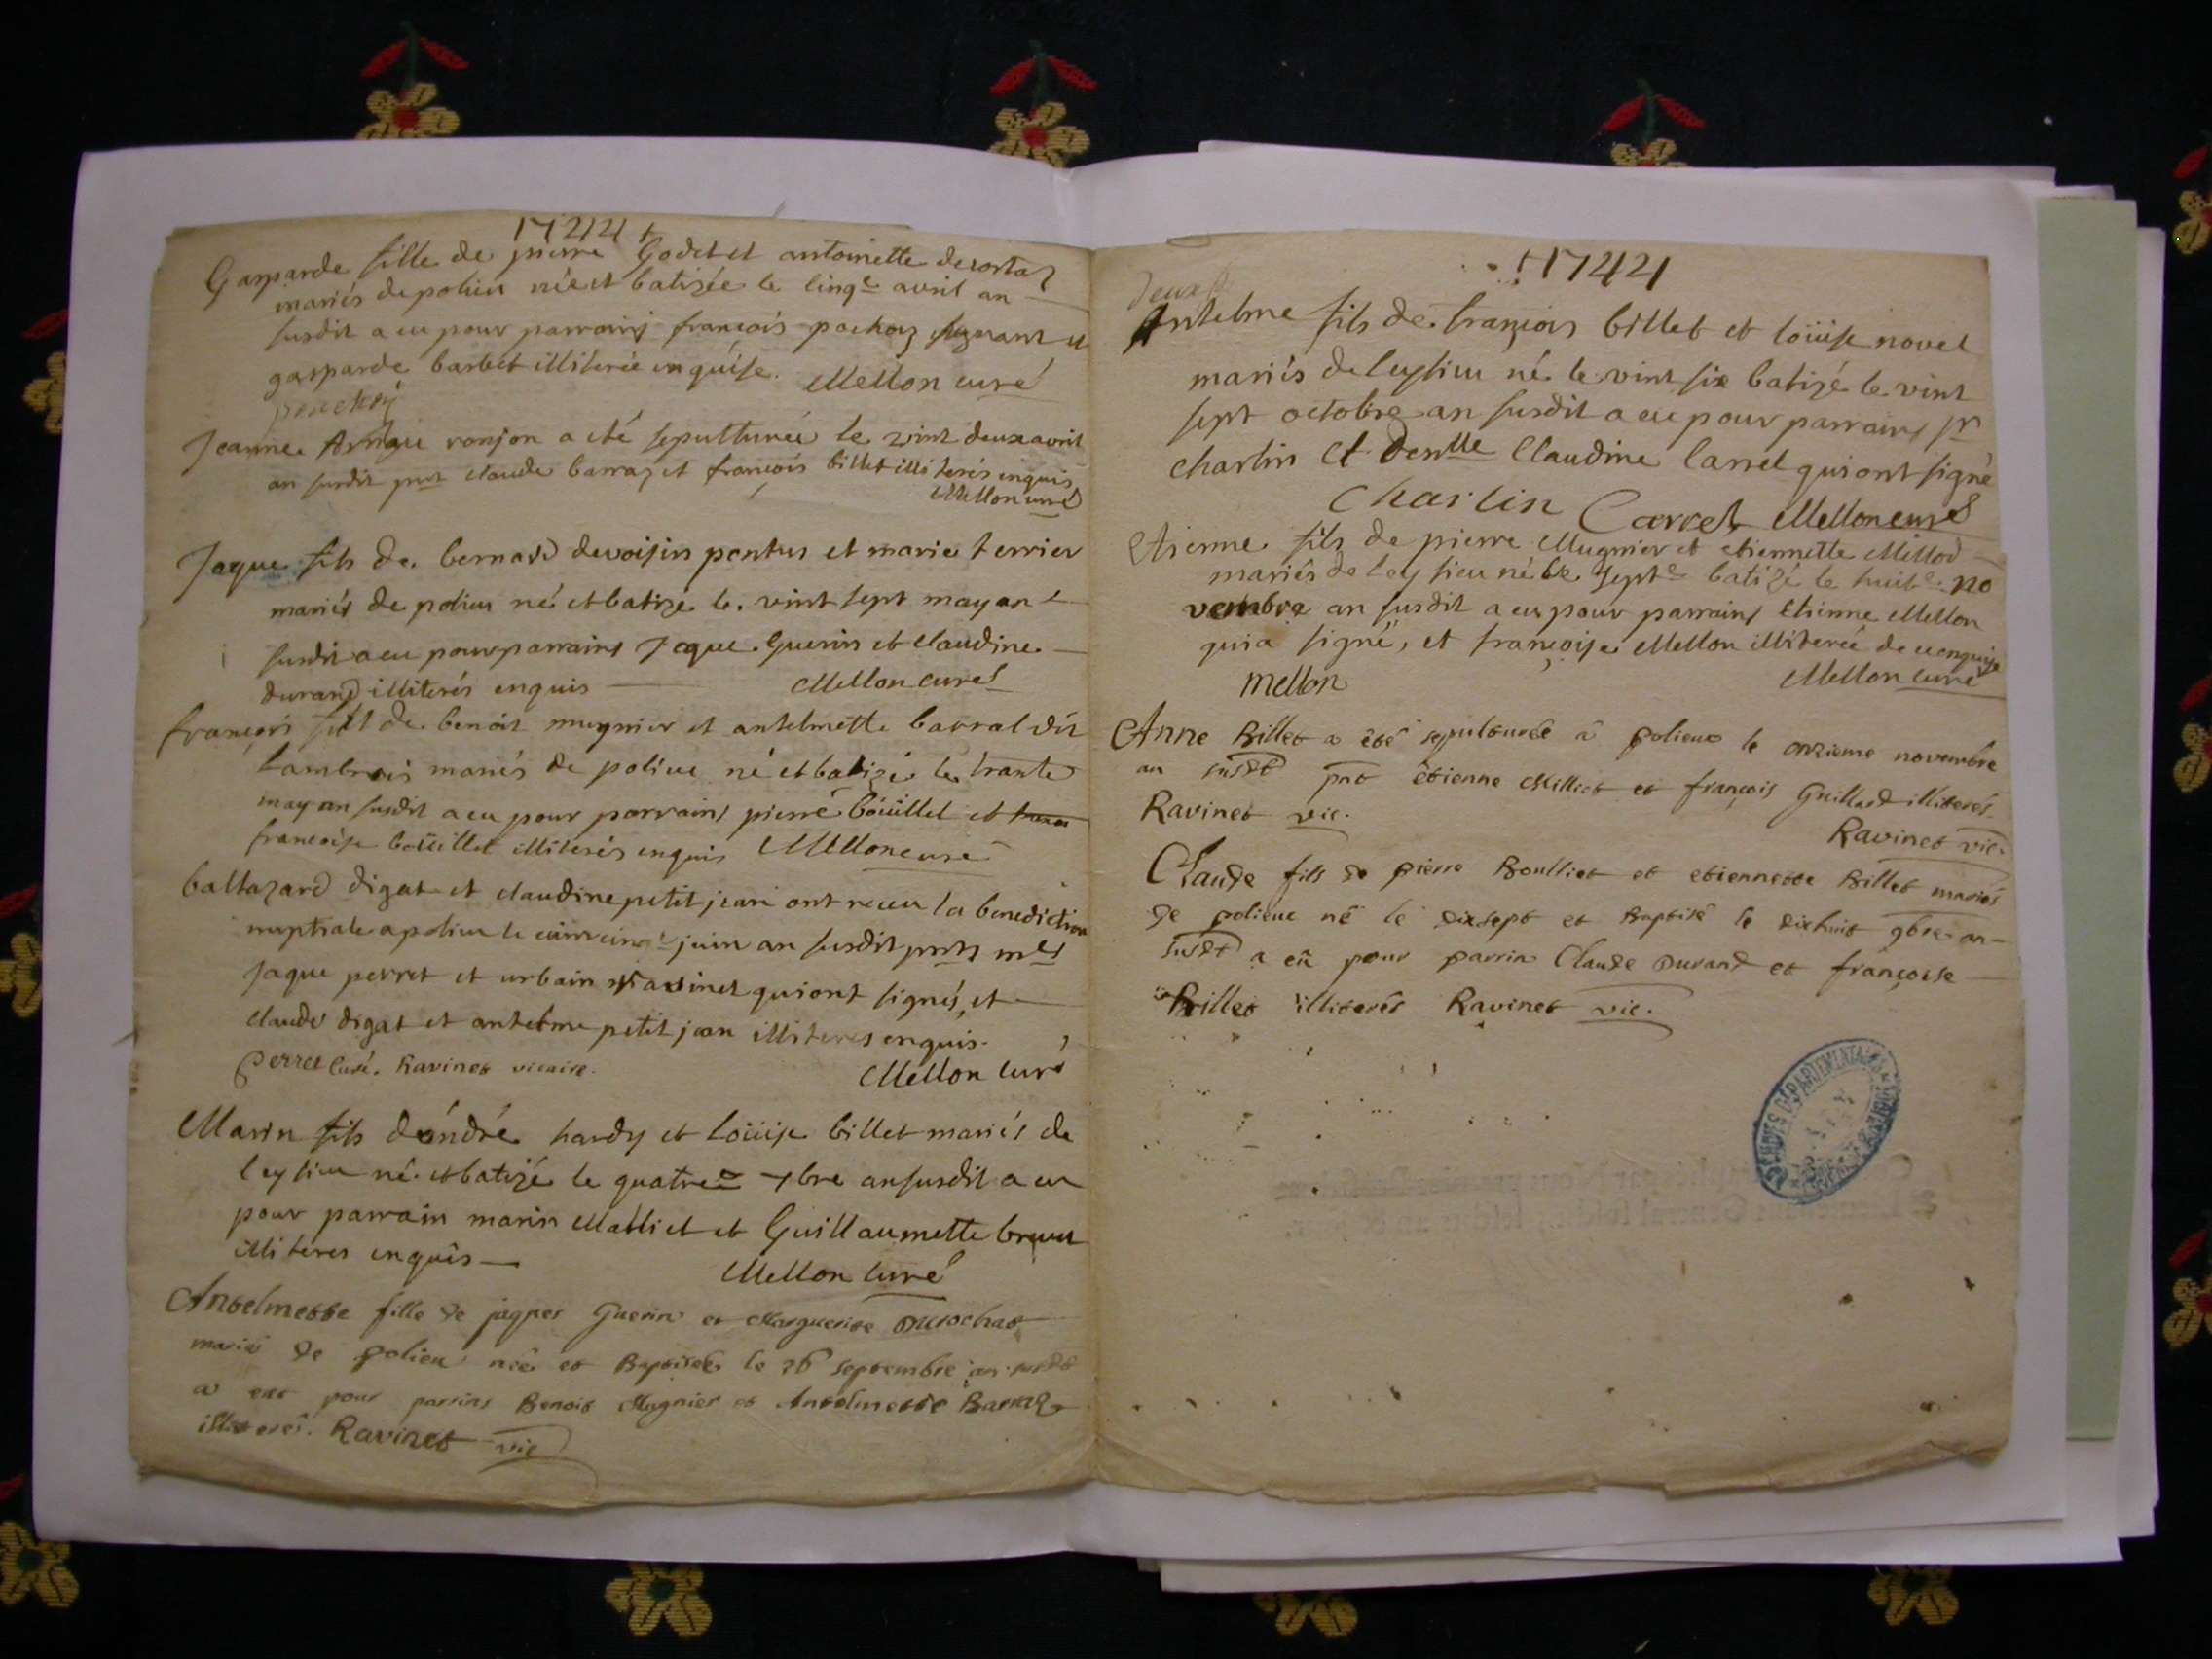 1744
Gasparde fille de pierre Godet et antoinette
mariés de polieu née et batizée le cinq.e avril an
susdit a eu pour parrains françois pochoy signant et
gasparde barbet illiterée enquise. Mellon curé
pochoy
Jeanne ronjon a eté sepulturée le vint deux avril
an susdit pnt claude barraz et françois billet illiterés enquis
Mellon curé
Jaque fils de bernard devoisin pontus et marie terrier
mariés de polieu né et batizé le vint sept may an
susdit a eu pour parrains Jaque Guerin et claudine
durand illiterés enquis Mellon curé
françois fils de benoit mugnier et antelmette barral dit
mariés de polieu né et batizé le trante
may an susdit a eu pour parrains pierre boüillet et
françoise boüillet illiterés enquis Mellon curé
baltazard digat et claudine petit jean ont receu la benediction
nuptiale a polieu le juin an susdit pnts mes
Jaque perret et urbain ravinet qui ont signés, et
claude digat et antelme petit jean illiteres enquis.
Perret Curé. Ravinet vicaire.
Mellon curé
Marin fils d'andré hardy et Loüise billet mariés de
leysieu né et batizé le quatre 7bre an susdit a eu
pour parrain marin Malliet et Guillaumette brunet
illiteres enquis
Mellon curé
Antelmette fille de jaques Guerin et Marguerite Durochat
mariés de polieu née et Baptisée le 26 septembre an susdt
a eut pour parrins Benoit Mugnier et Antelmette Barral
illiterés. Ravinet vic
1744
Antelme fils de françois billet et loüise novel
mariés de leysieu né le vint six batizé le vint
sept octobre an susdit a eu pour parrains sr
charlin et demlle Claudine Carrel qui ont signé
Charlin Carrel Mellon curé
Etienne fils de pierre Mugnier et etiennette Millod
mariés de leysieu né le sept.e batizé le huit.e no
vembre an susdit a eu pour parrains Etienne Mellon
qui a signé, et françoise Mellon illiterée de ce enquise
Mellon Mellon curé
Anne Billet a été sepulturée à polieux le onzieme novembre
an susdt pnt étienne Milliet et françois Guillard illiterés.
Ravinet vic.
Ravinet vic.
Claude fils de pierre Boulliet et etiennette Billet mariés
de polieue né le dixsept et Baptisé le dixhuit 9bre an
susdt a eü pour parrin Claude Durand et françoise
Billet illiterés Ravinet vic.